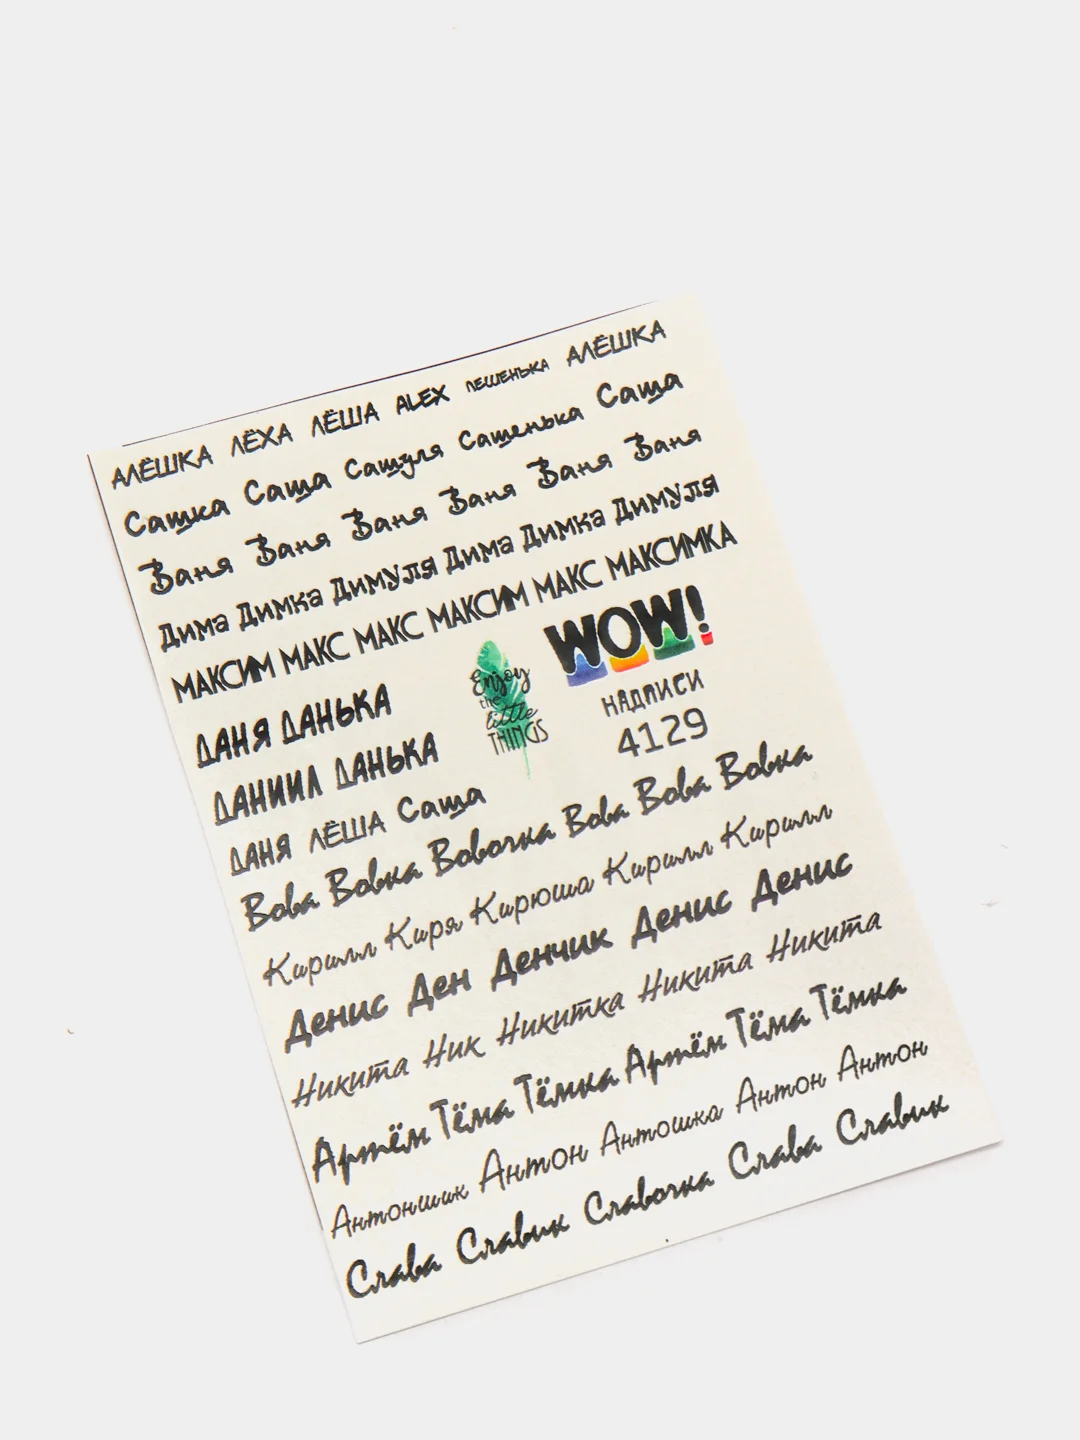 АЛЁШКА ЛЁХА ЛЁША ALEX ЛЕШЕНЬКА АЛЁШКА
Сашка Саша Сашуля Сашенька Саша
Ваня Ваня Ваня Ваня Ваня Ваня
Дима Димка Димуля Дима Димка Димуля
МАКСИМ МАКС МАКС МАКСИМ МАКС МАКСИМКА
ДАНЯ ДАНЬКА
ДАНИИЛ ДАНЬКА
ДАНЯ ЛЁША Саша
Enjoy
the
little
THINGS
WOW!
НАДПИСИ
4129
Вова Вовка Вовочка Вова Вова Вовка
Кирилл Киря Кирюша Кирилл Кирилл
Денис Ден Денчик Денис Денис
Никита Ник Никитка Никита Никита
Артём Тёма Тёмка Артём Тёма Тёмка
Антошик Антон Антошка Антон Антон
Слава Славик Славочка Слава Славик